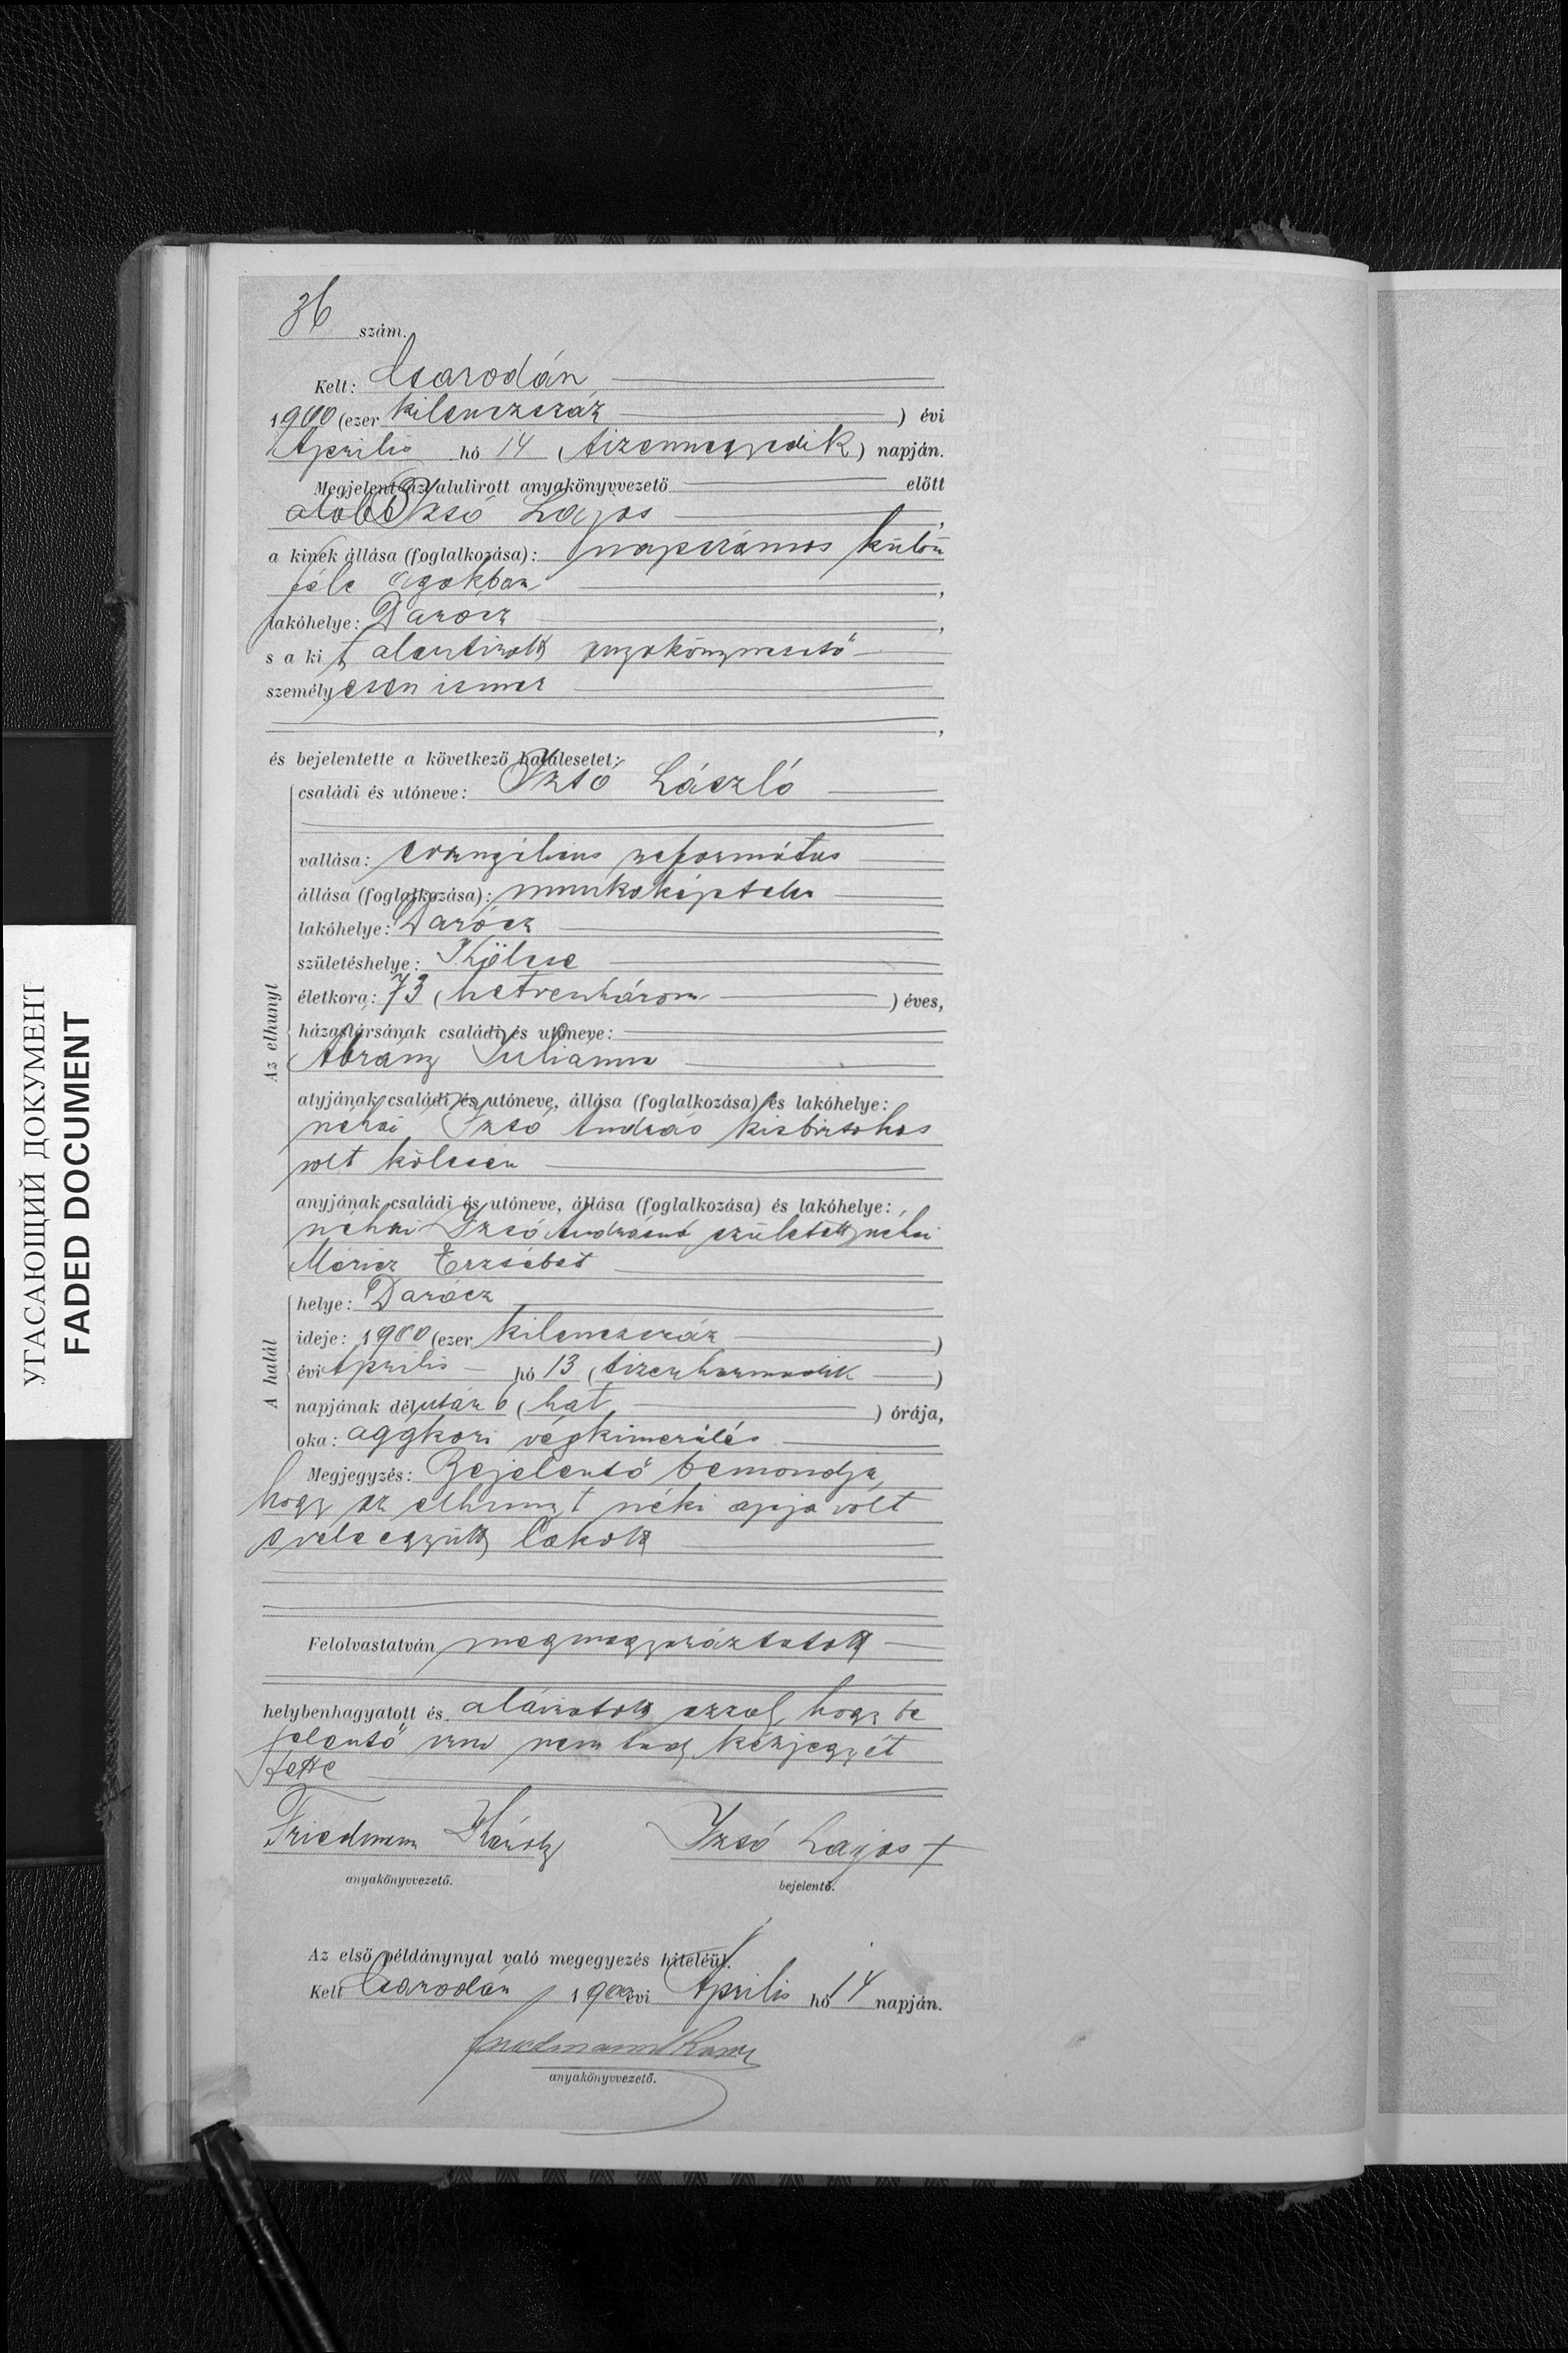 36 szám.
Kelt: Csarodán
1900 (ezer kilenczszáz) évi
Április hó 14 (tizennegyedik) napján.
Megjelent az alulirott anyakönyvvezető előtt
alább Izsó Lajos,
a kinek állása (foglalkozása): napszámos külön
féle ágakban,
lakóhelye: Darócz,
s a kit alantirott anyakönyvvezető
személyesen ismer
,
és bejelentette a következő halálesetet:
Az elhunyt
családi és utóneve: Izsó László
vallása: evangélicus református
állása (foglalkozása): munkaképtelen
lakóhelye: Darócz
születéshelye: Kölcse
életkora: 73 (hetvenhárom) éves,
házastársának családi és utóneve:
Ábrány Juliánna
atyjának családi és utóneve, állása (foglalkozása) és lakóhelye:
néhai Izsó András kisbirtokos
volt kölcsén
anyjának családi és utóneve, állása (foglalkozása) és lakóhelye:
néhai Izsó Andrásné született néhai
Móricz Erzsébet
A halál
helye: Darócz
ideje: 1900 (ezer kilenczszáz)
évi Április hó 13 (tizenharmadik)
napjának délután 6 (hat) órája,
oka: aggkori végkimerülés
Megjegyzés: Bejelentő bemondja,
hogy az elhunyt néki apja volt
s vele együtt lakott
Felolvastatván megmagyaráztatott
helybenhagyatott és aláiratott azzal, hogy be
jelentő irni nem tud kézjegyét
tette
Friedmann Károly
anyakönyvvezető.
Izsó Lajos +
bejelentő.
Az első példánynyal való megegyezés hiteléül.
Kelt Csarodán 1900 évi Április hó 14 napján.
anyakönyvvezető.
УГАСАЮЩИЙ ДОКУМЕНТ
FADED DOCUMENT